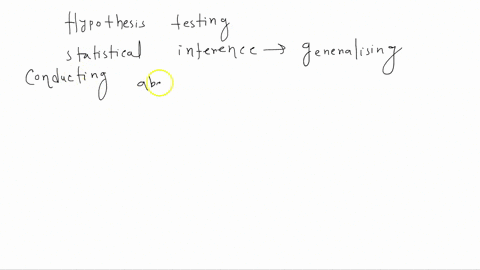 Hypothesis testing
statistical inference → generalising
Conducting ab